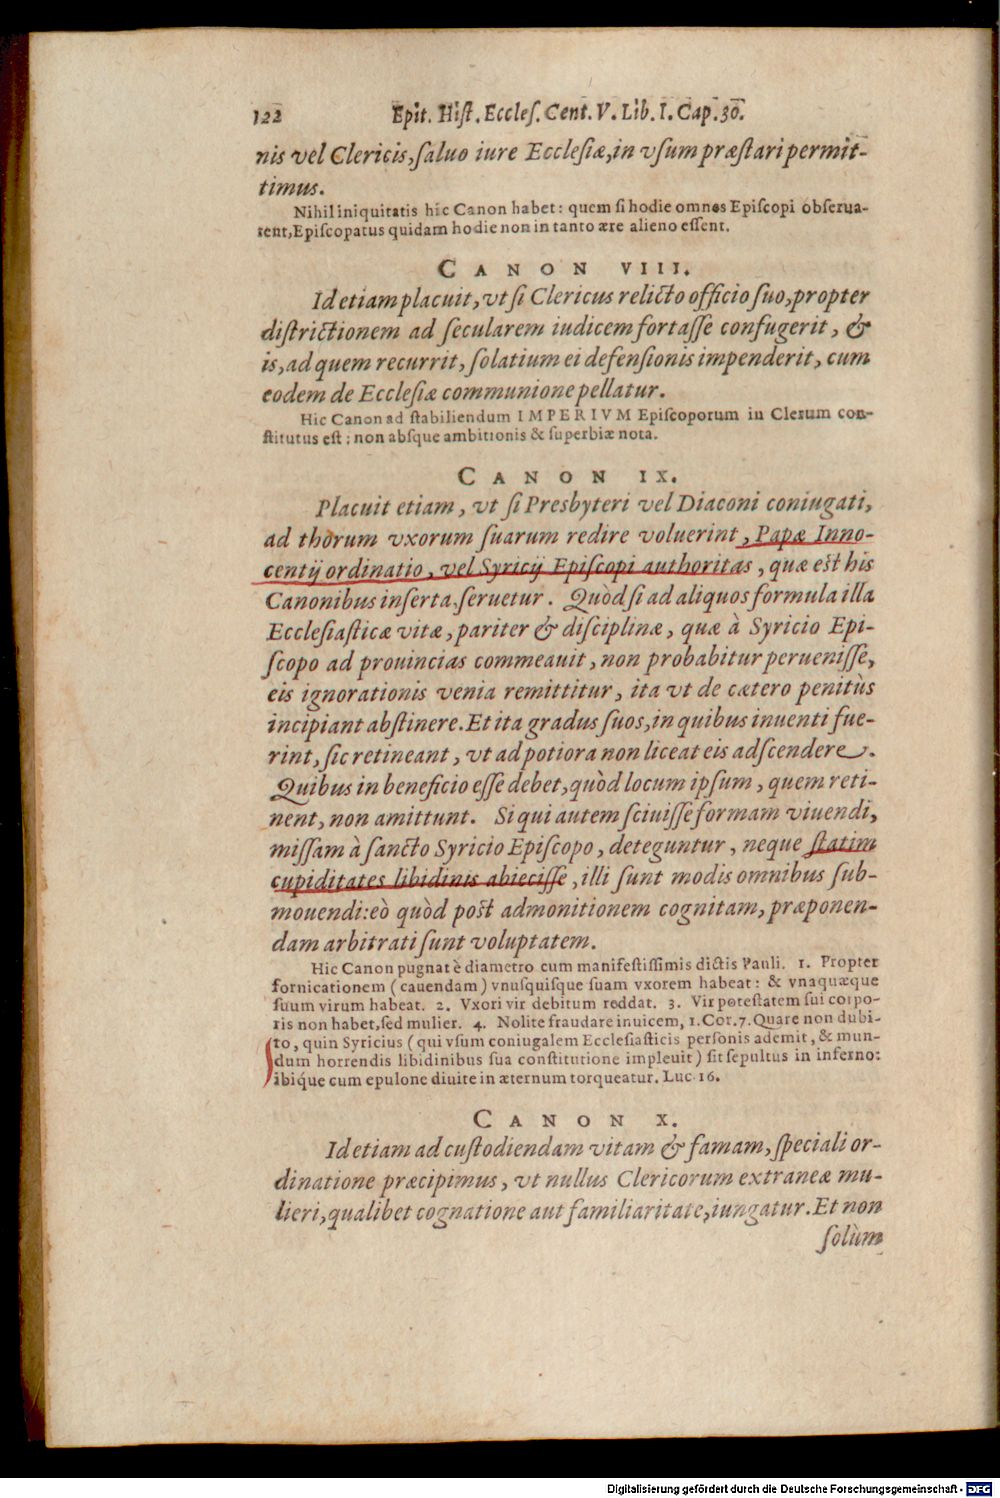 122 Epit. Hiſt. Eccleſ. Cent. V. Lib. I. Cap. 30.
nis vel Clericis, ſaluo iure Eccleſiæ, in vſum præſtari permit-
timus.
Nihil iniquitatis hic Canon habet: quem ſi hodie omnes Epiſcopi obſerua-
rent, Epiſcopatus quidam hodie non in tanto ære alieno eſſent.
CANON VIII.
Id etiam placuit, vt ſi Clericus relicto officio ſuo, propter
diſtrictionem ad ſecularem iudicem fortaſſe confugerit, &
is, ad quem recurrit, ſolatium ei defenſionis impenderit, cum
eodem de Eccleſiæ communione pellatur.
Hic Canon ad ſtabiliendum IMPERIVM Epiſcoporum in Clerum con-
ſtitutus eſt: non abſque ambitionis & ſuperbiæ nota.
CANON IX.
Placuit etiam, vt ſi Presbyteri vel Diaconi coniugati,
ad thorum vxorum ſuarum redire voluerint, Papæ Inno-
centij ordinatio, vel Syricij Epiſcopi authoritas, quæ eſt his
Canonibus inſerta, ſeruetur. Quòd ſi ad aliquos formula illa
Eccleſiaſticæ vitæ, pariter & diſciplinæ, quæ à Syricio Epi-
ſcopo ad prouincias commeauit, non probabitur perueniſſe,
eis ignorationis venia remittitur, ita vt de cætero penitùs
incipiant abſtinere. Et ita gradus ſuos, in quibus inuenti fue-
rint, ſic retineant, vt ad potiora non liceat eis adſcendere.
Quibus in beneficio eſſe debet, quòd locum ipſum, quem reti-
nent, non amittunt. Si qui autem ſciuiſſe formam viuendi,
miſſam à ſancto Syricio Epiſcopo, deteguntur, neque ſtatim
cupiditates libidinis abieciſſe, illi ſunt modis omnibus ſub-
mouendi: eò quòd poſt admonitionem cognitam, præponen-
dam arbitrati ſunt voluptatem.
Hic Canon pugnat è diametro cum manifeſtiſſimis dictis Pauli. 1. Propter
fornicationem (cauendam) vnuſquiſque ſuam vxorem habeat: & vnaquæque
ſuum virum habeat. 2. Vxori vir debitum reddat. 3. Vir poteſtatem ſui corpo-
ris non habet, ſed mulier. 4. Nolite fraudare inuicem, 1. Cor. 7. Quare non dubi-
to, quin Syricius (qui vſum coniugalem Eccleſiaſticis perſonis ademit, & mun-
dum horrendis libidinibus ſua conſtitutione impleuit) ſit ſepultus in inferno:
ibique cum epulone diuite in æternum torqueatur. Luc. 16.
CANON X.
Id etiam ad cuſtodiendam vitam & famam, ſpeciali or-
dinatione præcipimus, vt nullus Clericorum extraneæ mu-
lieri, qualibet cognatione aut familiaritate, iungatur. Et non
ſolùm
Digitalisierung gefördert durch die Deutsche Forschungsgemeinschaft - DFG